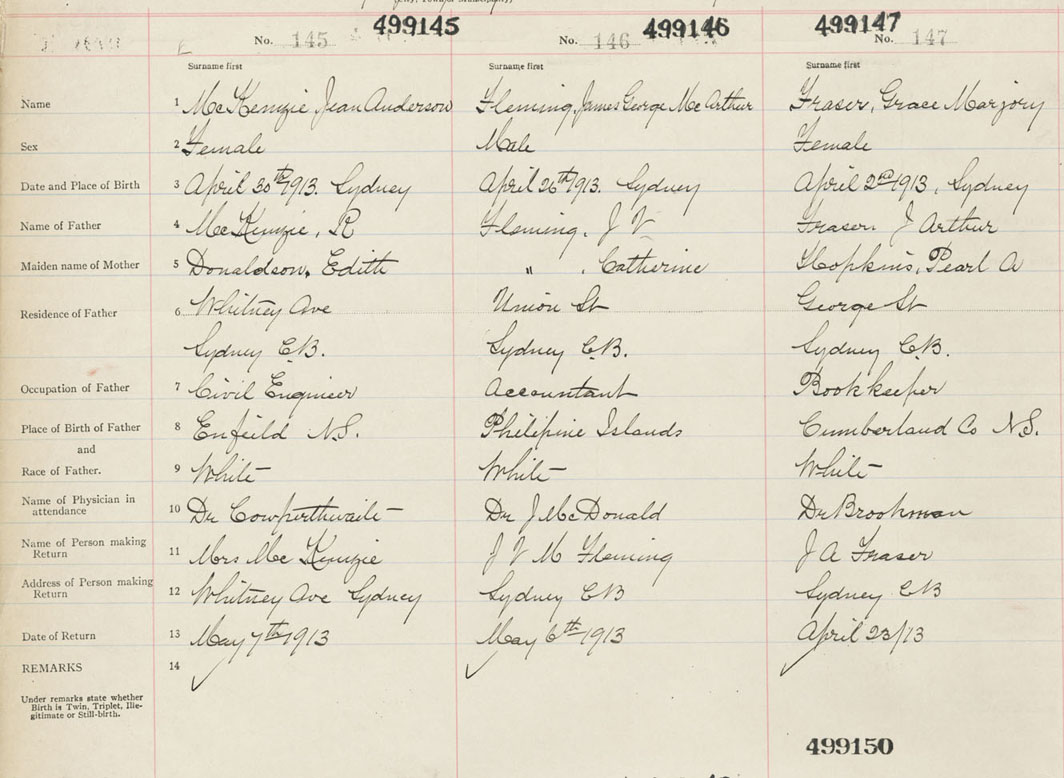 499145 499146 499147
No. 145 No. 146 No. 147
Surname first Surname first Surname first
Name 1 McKenzie, Jean Anderson Fleming, James George McArthur Fraser, Grace Marjory
Sex 2 Female Male Female
Date and Place of Birth 3 April 30th 1913. Sydney April 26th 1913. Sydney April 2nd 1913, Sydney
Name of Father 4 McKenzie, R Fleming, J V Fraser. J Arthur
Maiden name of Mother 5 Donaldson, Edith " , Catherine Hopkins, Pearl A
Residence of Father 6 Whitney Ave Union St George St
Sydney C.B. Sydney C.B. Sydney C.B.
Occupation of Father 7 Civil Engineer Accountant Bookkeeper
Place of Birth of Father 8 Enfeild N.S. Philipine Islands Cumberland Co N.S.
and
Race of Father. 9 White White White
Name of Physician in
attendance 10 Dr Cowperthwaite Dr J McDonald Dr Brookman
Name of Person making
Return 11 Mrs McKenzie J V M Fleming J A Fraser
Address of Person making
Return 12 Whitney Ave Sydney Sydney CB Sydney CB
Date of Return 13 May 7th 1913 May 6th 1913 April 23/13
REMARKS 14
Under remarks state whether
Birth is Twin, Triplet, Ille-
gitimate or Still-birth.
499150